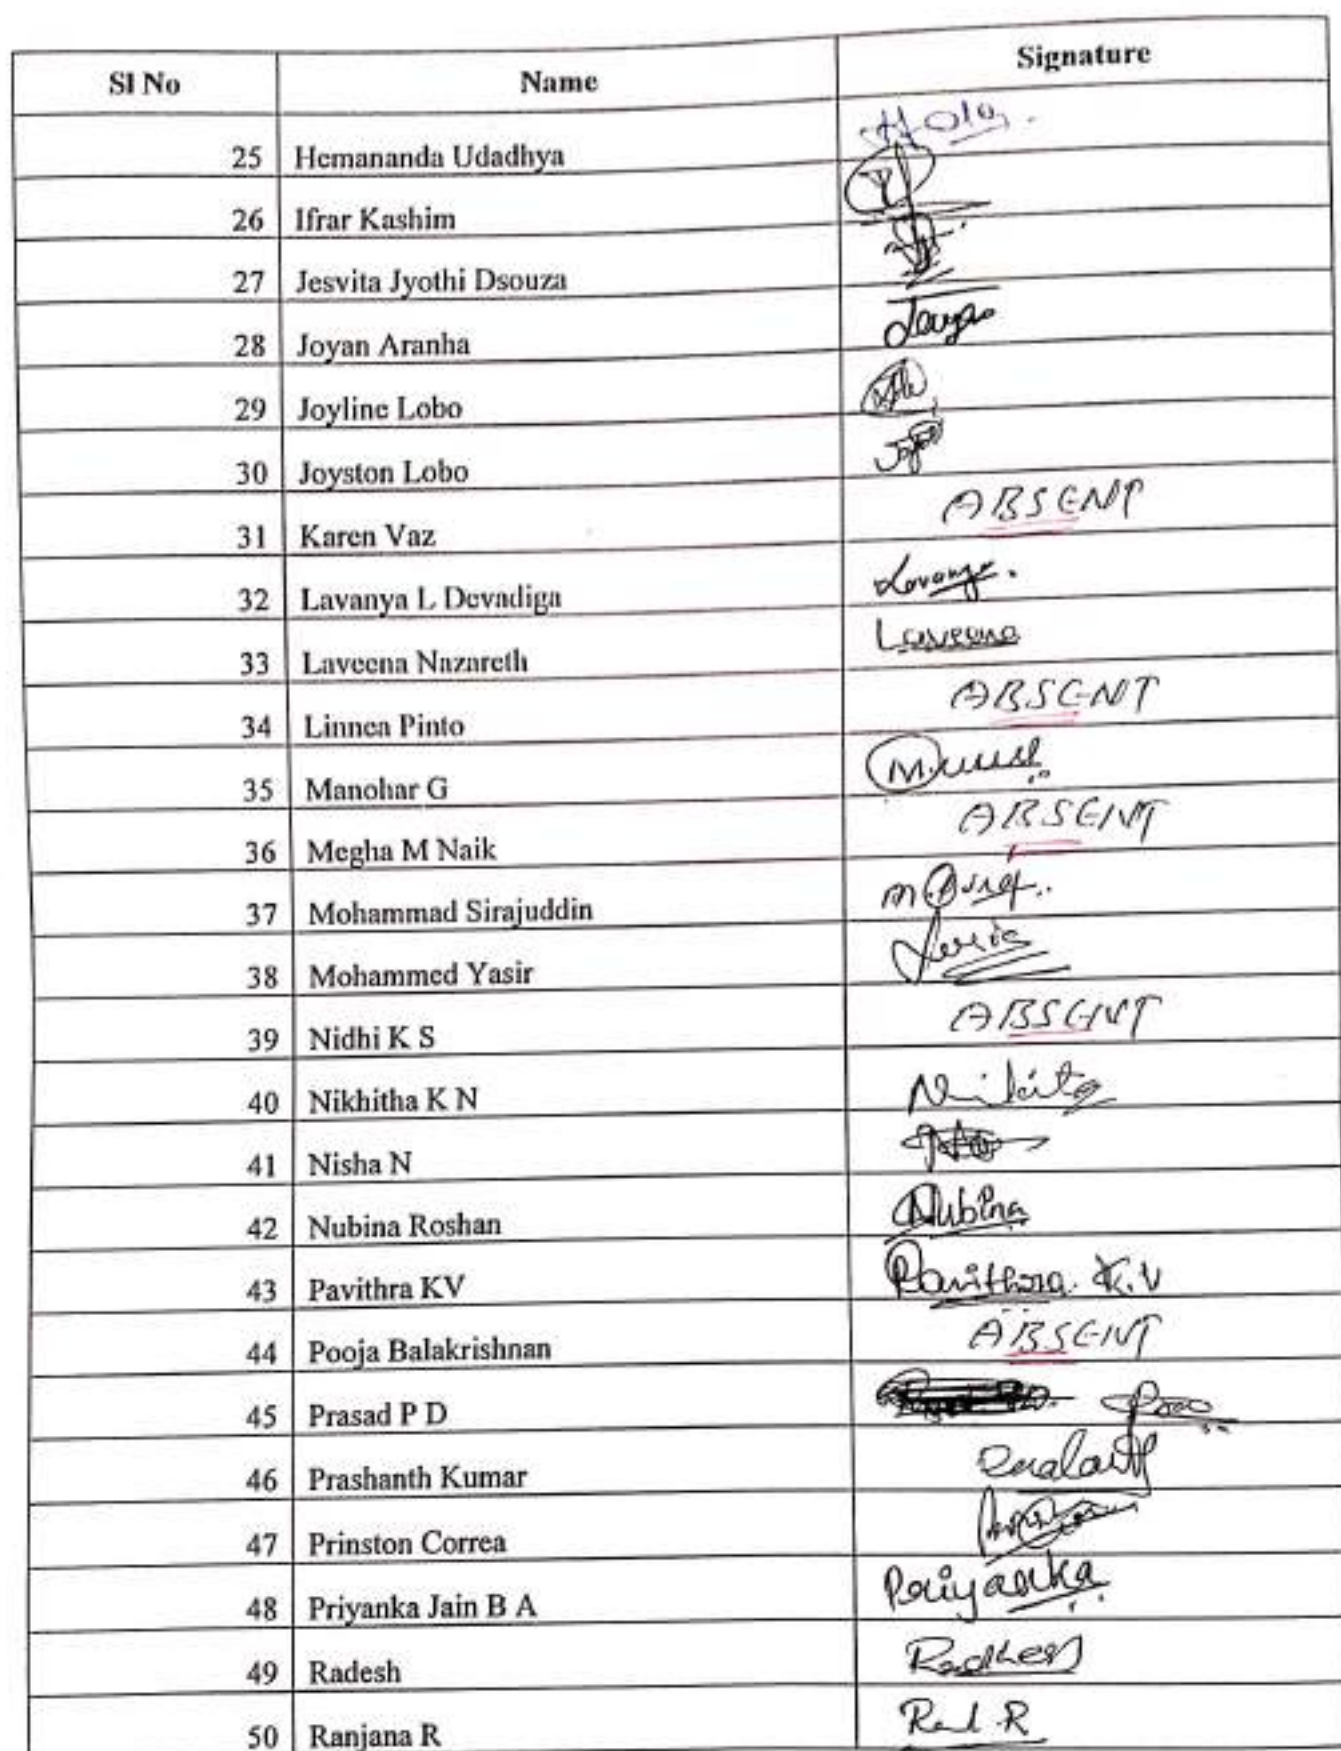 Sl No Name Signature
25 Hemananda Udadhya
26 Ifrar Kashim
27 Jesvita Jyothi Dsouza
28 Joyan Aranha
29 Joyline Lobo
30 Joyston Lobo
31 Karen Vaz ABSENT
32 Lavanya L Devadiga Lavanya.
33 Laveena Nazareth Laveena
34 Linnea Pinto ABSENT
35 Manohar G
36 Megha M Naik ABSENT
37 Mohammad Sirajuddin
38 Mohammed Yasir
39 Nidhi K S ABSENT
40 Nikhitha K N Nikita
41 Nisha N
42 Nubina Roshan Nubina
43 Pavithra KV Pavithra K.V
44 Pooja Balakrishnan ABSENT
45 Prasad P D
46 Prashanth Kumar
47 Prinston Correa
48 Priyanka Jain B A Priyanka
49 Radesh Radhesh
50 Ranjana R